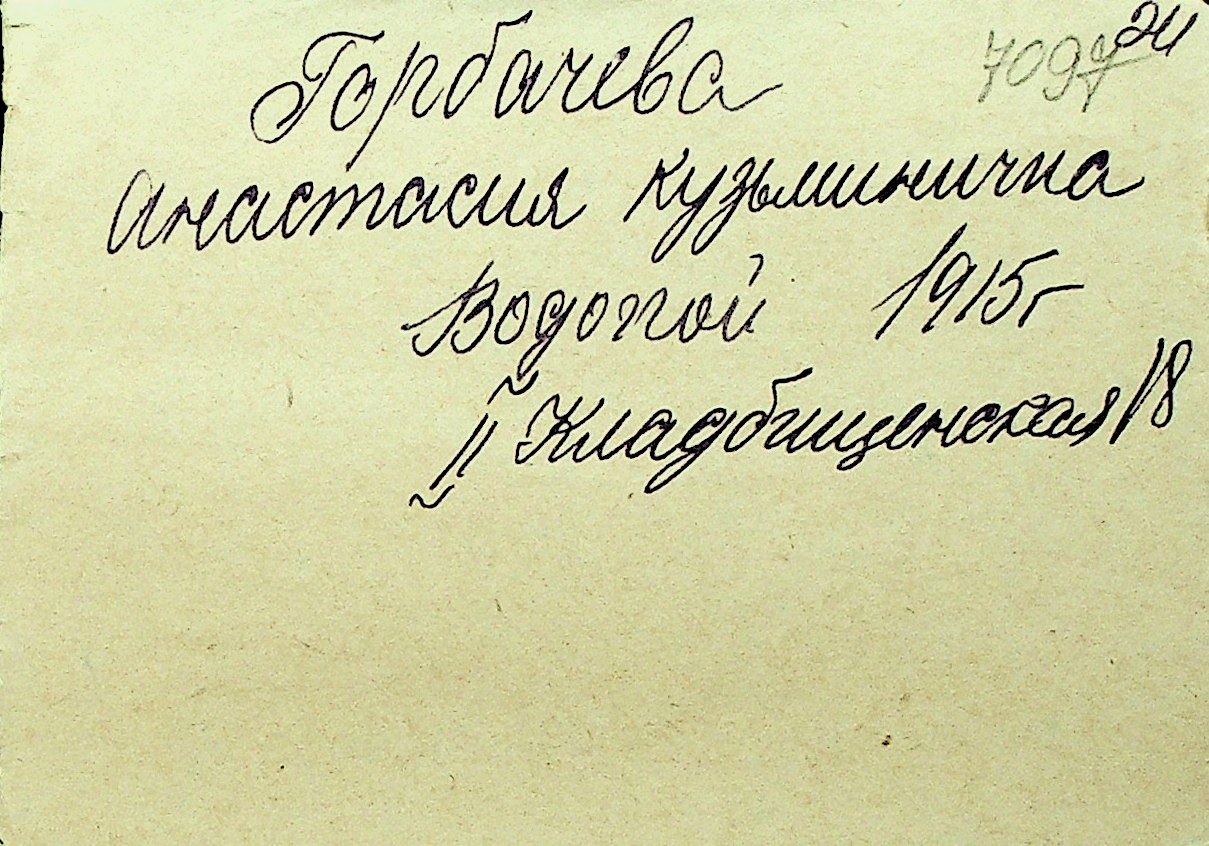 Горбачева
Анастасия Кузьминична
Водопой 1915г
II Кладбищенская 18